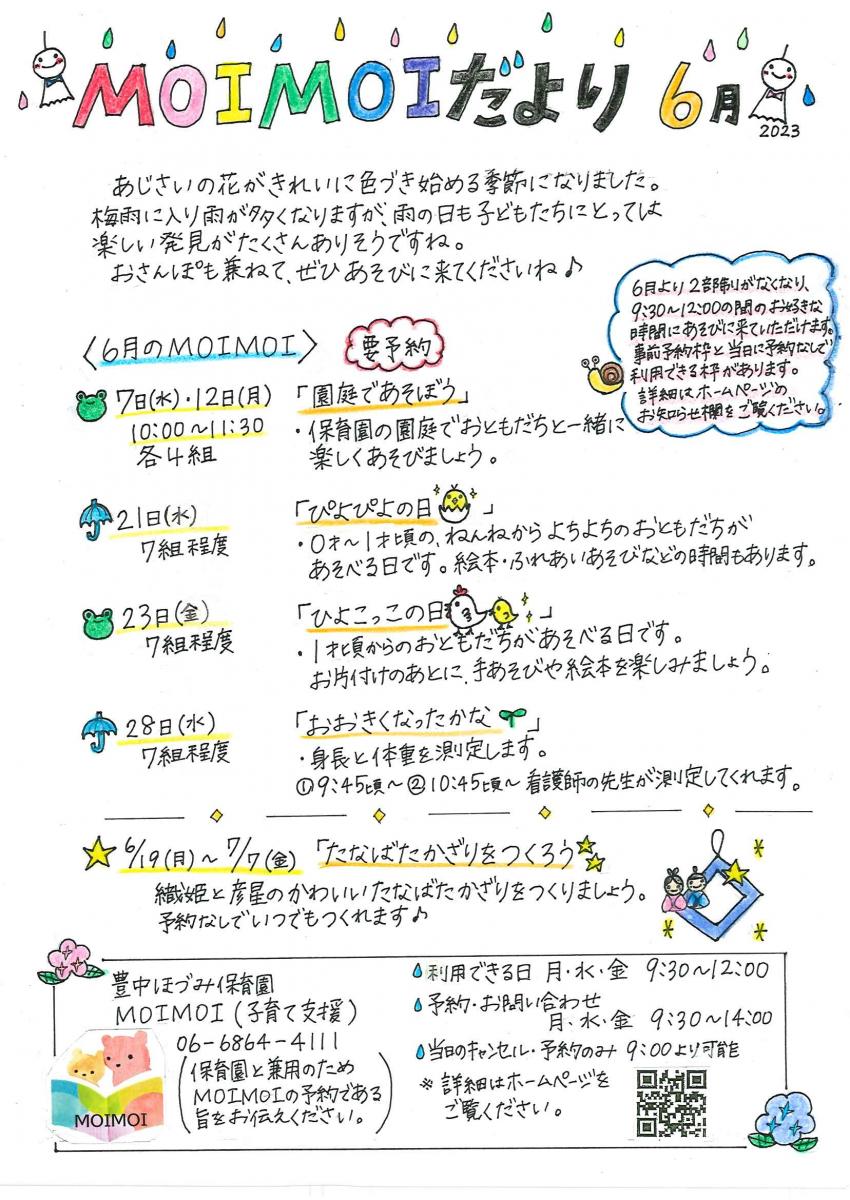 MOIMOIだより 6月
2023
あじさいの花がきれいに色づき始める季節になりました。
梅雨に入り雨が多くなりますが、雨の日も子どもたちにとっては
楽しい発見がたくさんありそうですね。
おさんぽも兼ねて、ぜひあそびに来てくださいね♪
6月より2部制がなくなり、
9:30〜12:00の間のお好きな
時間にあそびに来ていただけます。
事前予約枠と当日に予約なしで
利用できる枠があります。
詳細はホームページの
お知らせ欄をご覧ください。
〈6月のMOIMOI〉
要予約
7日(水)・12日(月)
10:00〜11:30
各4組
「園庭であそぼう」
・保育園の園庭でおともだちと一緒に
楽しくあそびましょう。
21日(水)
7組程度
「ぴよぴよの日」
・0才〜1才頃の、ねんねからよちよちのおともだちが
あそべる日です。絵本・ふれあいあそびなどの時間もあります。
23日(金)
7組程度
「ひよこっこの日」
・1才頃からのおともだちがあそべる日です。
お片付けのあとに、手あそびや絵本を楽しみましょう。
28日(水)
7組程度
「おおきくなったかな」
・身長と体重を測定します。
①9:45頃〜②10:45頃〜 看護師の先生が測定してくれます。
6/19(月)〜7/7(金)「たなばたかざりをつくろう」
織姫と彦星のかわいいたなばたかざりをつくりましょう。
予約なしでいつでもつくれます♪
豊中ほづみ保育園
MOIMOI(子育て支援)
06-6864-4111
(保育園と兼用のため
MOIMOIの予約である
旨をお伝えください。)
MOIMOI
利用できる日 月・水・金 9:30〜12:00
予約・お問い合わせ
月・水・金 9:30〜14:00
当日のキャンセル・予約のみ 9:00より可能
※詳細はホームページを
ご覧ください。